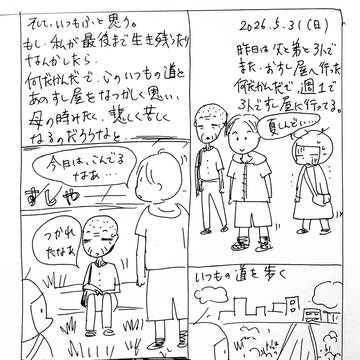 2026.5.31(日)
昨日は父と弟と3人で
また、おすし屋へ行った
何だかんだで、週1で
3人ですし屋に行ってる。
夏しんどい…
いつもの道を歩く
そして、いつもふと思う。
もし、私が最後まで生き残ったり
なんかしたら、
何だかんだで、このいつもの道と
あのすし屋をなつかしく思い、
母の時みたく、悲しく苦しく
なるのだろうなと
今日は、こんでる
なあ…
すしや
つかれ
たなあ